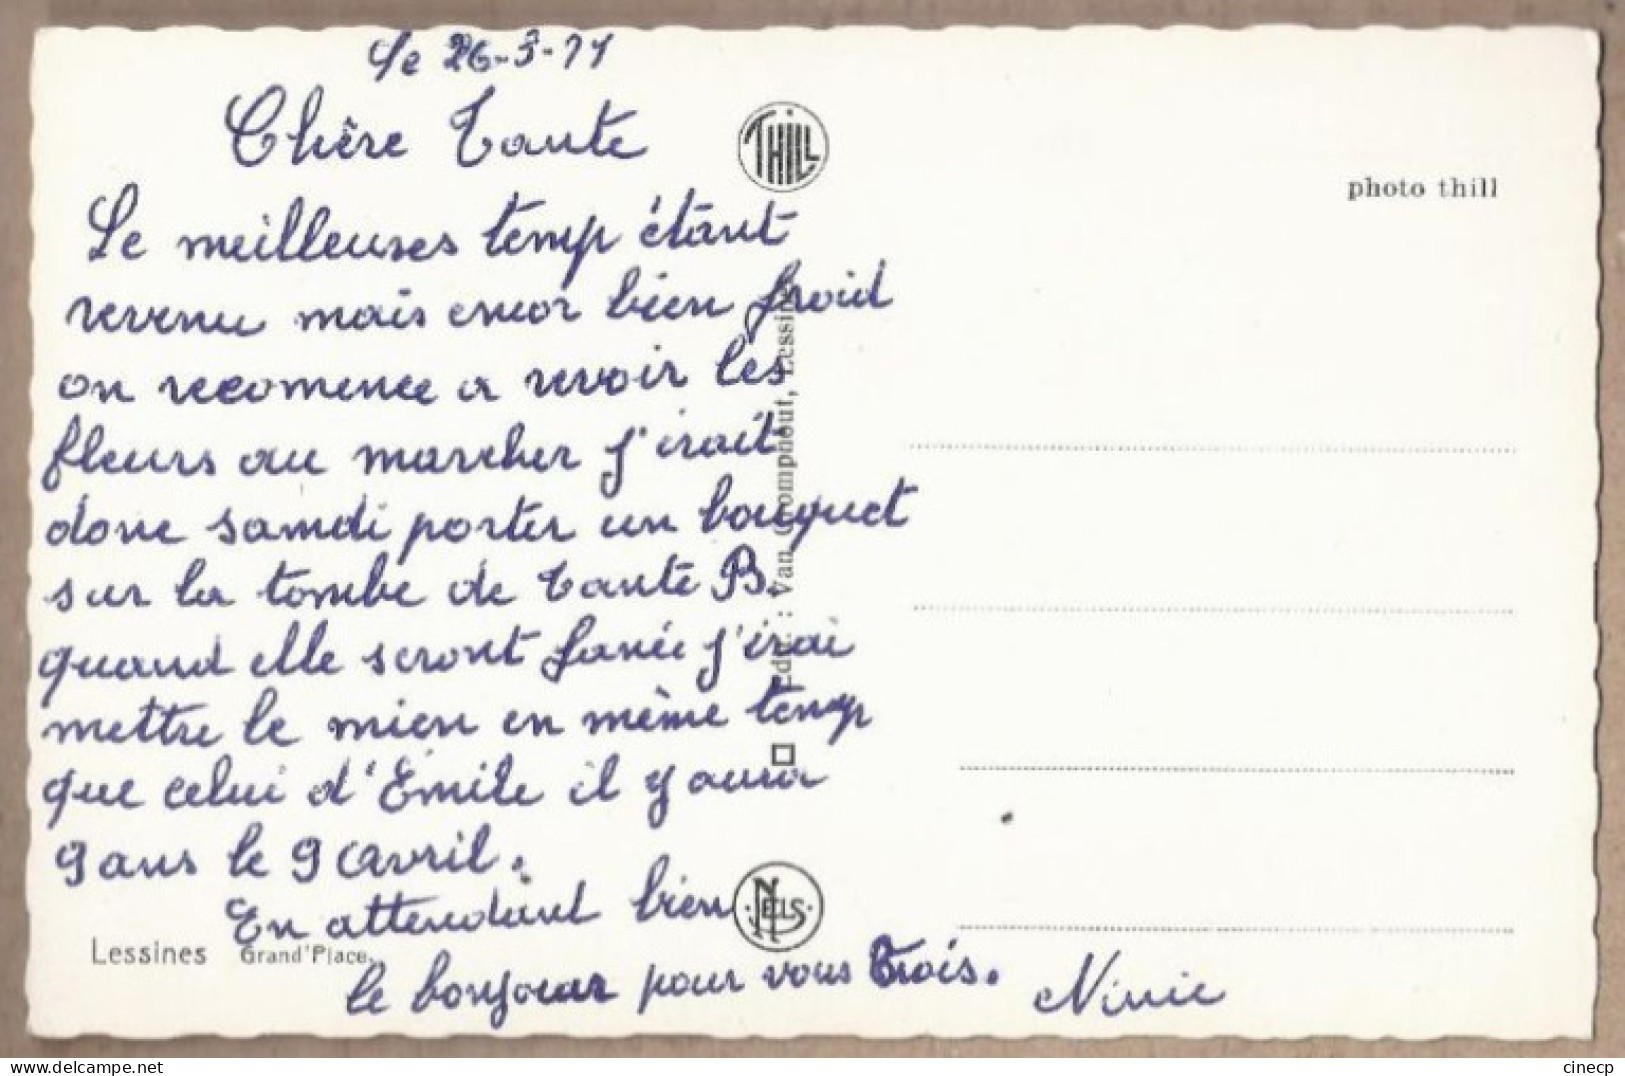 Le 26-3-71
Chère Tante
Le meilleuses temp étant
revenu mais encor bien froid
on recomence a revoir les
fleurs au marcher j'irait
donc samdi porter un bouquet
sur la tombe de tante B.
quand elle seront fanée j'irai
mettre le mien en même temp
que celui d'Émile il y aura
9 ans le 9 avril.
En attendant bien
le bonjour pour vous trois.
Ninie
THILL
photo thill
Van Cromphout, Lessines
NELS
Lessines Grand'Place.
cinecp
delcampe.net